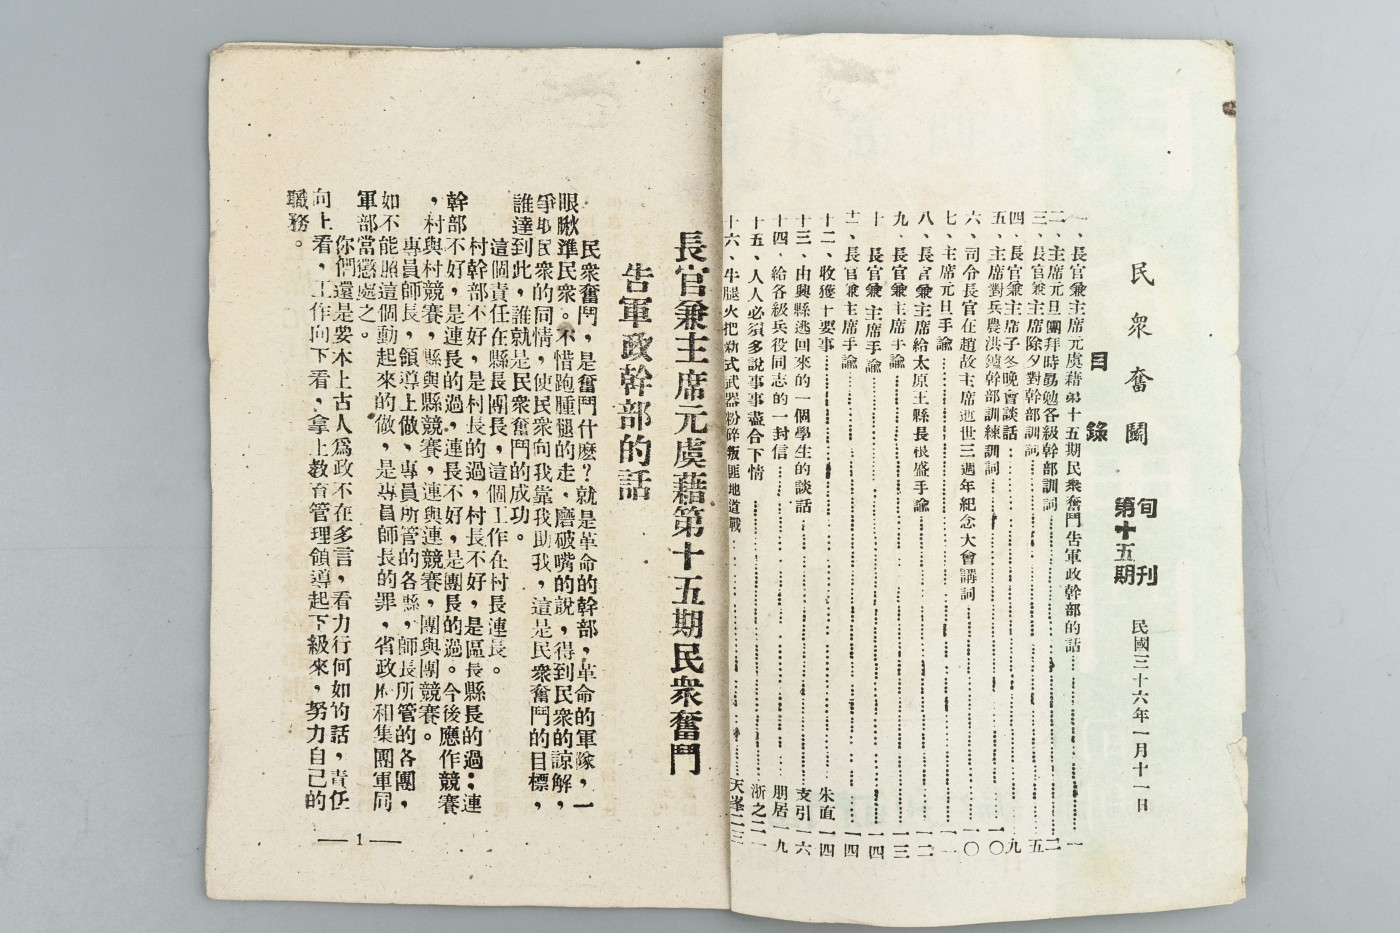 民眾奮鬭
旬刊
第十五期
民國三十六年一月十一日
目錄
一、長官兼主席元虞藉第十五期民衆奮鬥告軍政幹部的話……一
二、主席元旦團拜時勗勉各級幹部訓詞……二
三、長官兼主席除夕對幹部訓詞……五
四、長官兼主席子冬晚會談話……九
五、主席對兵農洪爐幹部訓練訓詞……一〇
六、司令長官在趙故主席逝世三週年紀念大會講詞……一〇
七、主席元旦手諭……一一
八、長官兼主席給太原王縣長根盛手諭……一二
九、長官兼主席手諭……一三
十、長官兼主席手諭……一四
十一、長官兼主席手諭……一四
十二、收獲十要事……朱直一四
十三、由興縣逃回來的一個學生的談話……支引一六
十四、給各級兵役同志的一封信……朋居一九
十五、人人必須多說事事盡合下情……浙之二一
十六、牛腿火把新式武器粉碎叛匪地道戰……天峰二三
長官兼主席元虞藉第十五期民衆奮鬥
告軍政幹部的話
民衆奮鬥，是奮鬥什麽？就是革命的幹部，革命的軍隊，一
眼瞅準民衆。不惜跑腫腿的走，磨破嘴的說，得到民衆的諒解，
爭取民衆的同情，使民衆向我靠我助我，這是民衆奮鬥的目標，
誰達到此，誰就是民衆奮鬥的成功。
這個責任在縣長團長，這個工作在村長連長。
村幹部不好，是村長的過，村長不好，是區長縣長的過；連
幹部不好，是連長的過，連長不好，是團長的過。今後應作競賽
，村與村競賽，縣與縣競賽，連與連競賽，團與團競賽。
專員師長，領導上做、專員所管的各縣，師長所管的各團，
如不能照這個動起來的做，是專員師長的罪，省政府和集團軍同
軍部當懲處之。
你們還是要本上古人爲政不在多言，看力行何如的話，責任
向上看，工作向下看，拿上教育管理領導起下級來，努力自己的
職務。
—1—